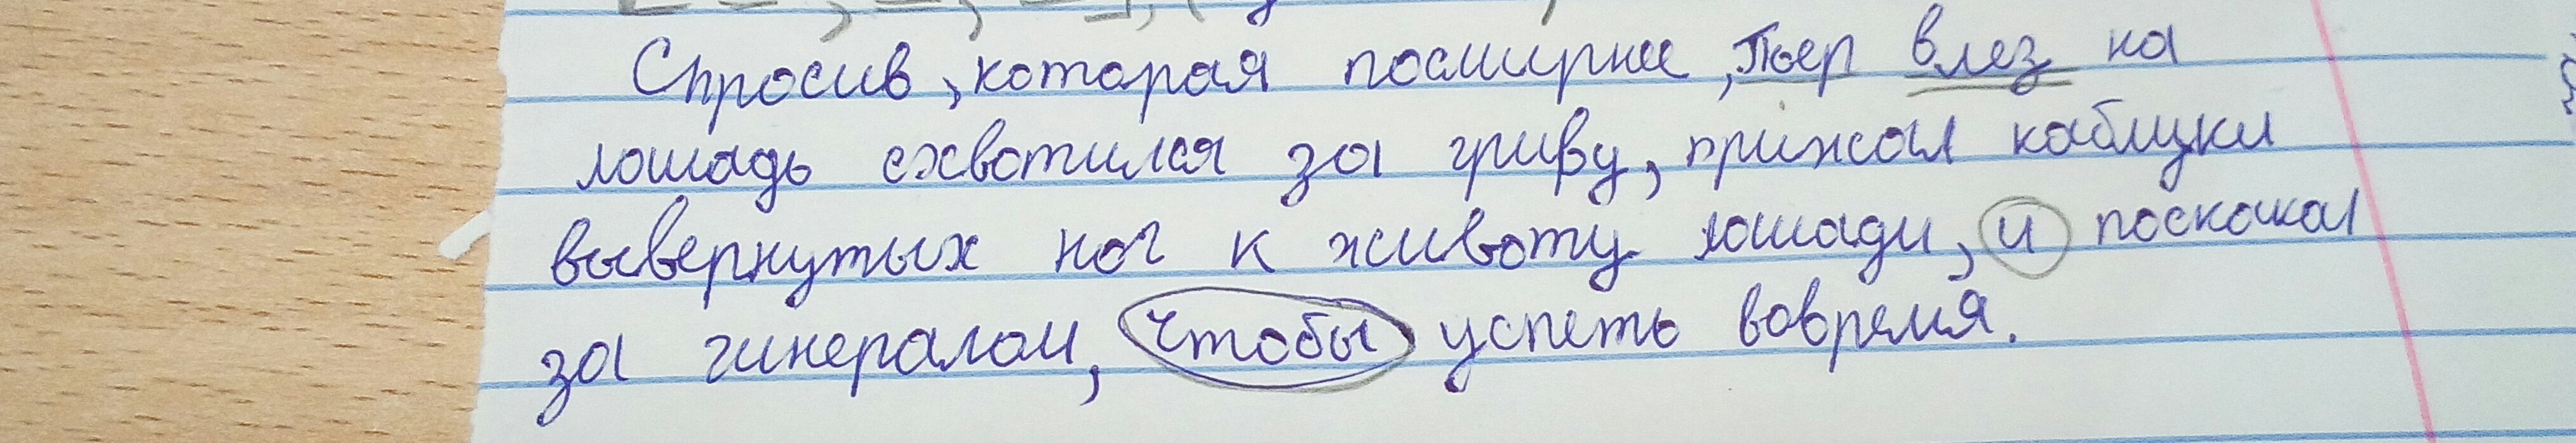 Спросив, которая посмирнее, Пьер влез на
лошадь схватился за гриву, прижал каблуки
вывернутых ног к животу лошади, и поскакал
за гинералом, чтобы успеть вовремя.